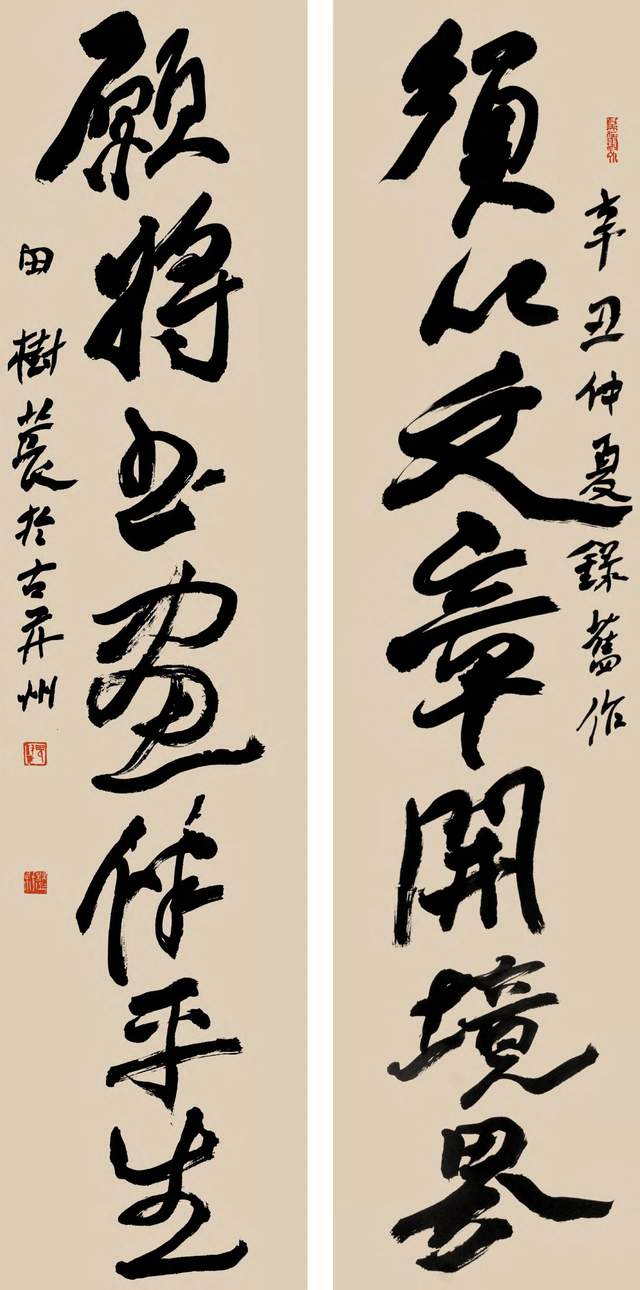 辛丑仲夏錄舊作
須以文章開境界
願將書畫伴平生
田樹萇於古并州